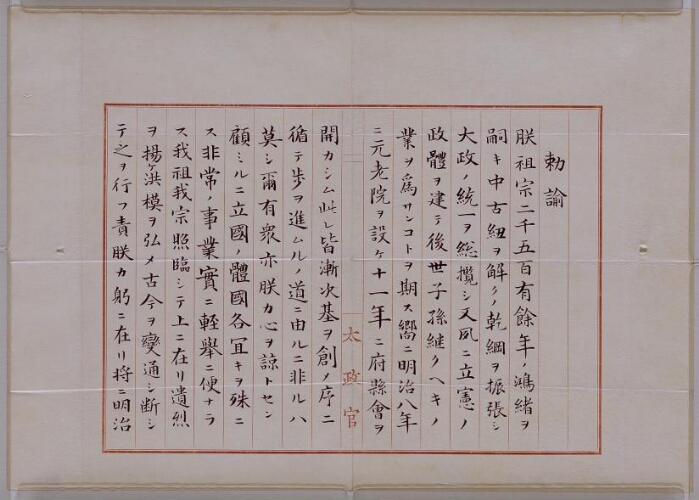 勅諭
朕祖宗二千五百有餘年ノ鴻緒ヲ
嗣キ中古紐ヲ解クノ乾綱ヲ振張シ
大政ノ統一ヲ總攬シ又夙ニ立憲ノ
政體ヲ建テ後世子孫継クヘキノ
業ヲ爲サンコトヲ期ス嚮ニ明治八年
ニ元老院ヲ設ケ十一年ニ府縣會ヲ
太政官
開カシム此レ皆漸次基ヲ創メ序ニ
循テ歩ヲ進ムルノ道ニ由ルニ非ルハ
莫シ爾有衆亦朕カ心ヲ諒トセン
顧ミルニ立國ノ體國各宜キヲ殊ニ
ス非常ノ事業實ニ輕擧ニ便ナラ
ス我祖我宗照臨シテ上ニ在リ遺烈
ヲ揚ケ洪模ヲ弘メ古今ヲ變通シ断シ
テ之ヲ行フ責朕カ躬ニ在リ将ニ明治